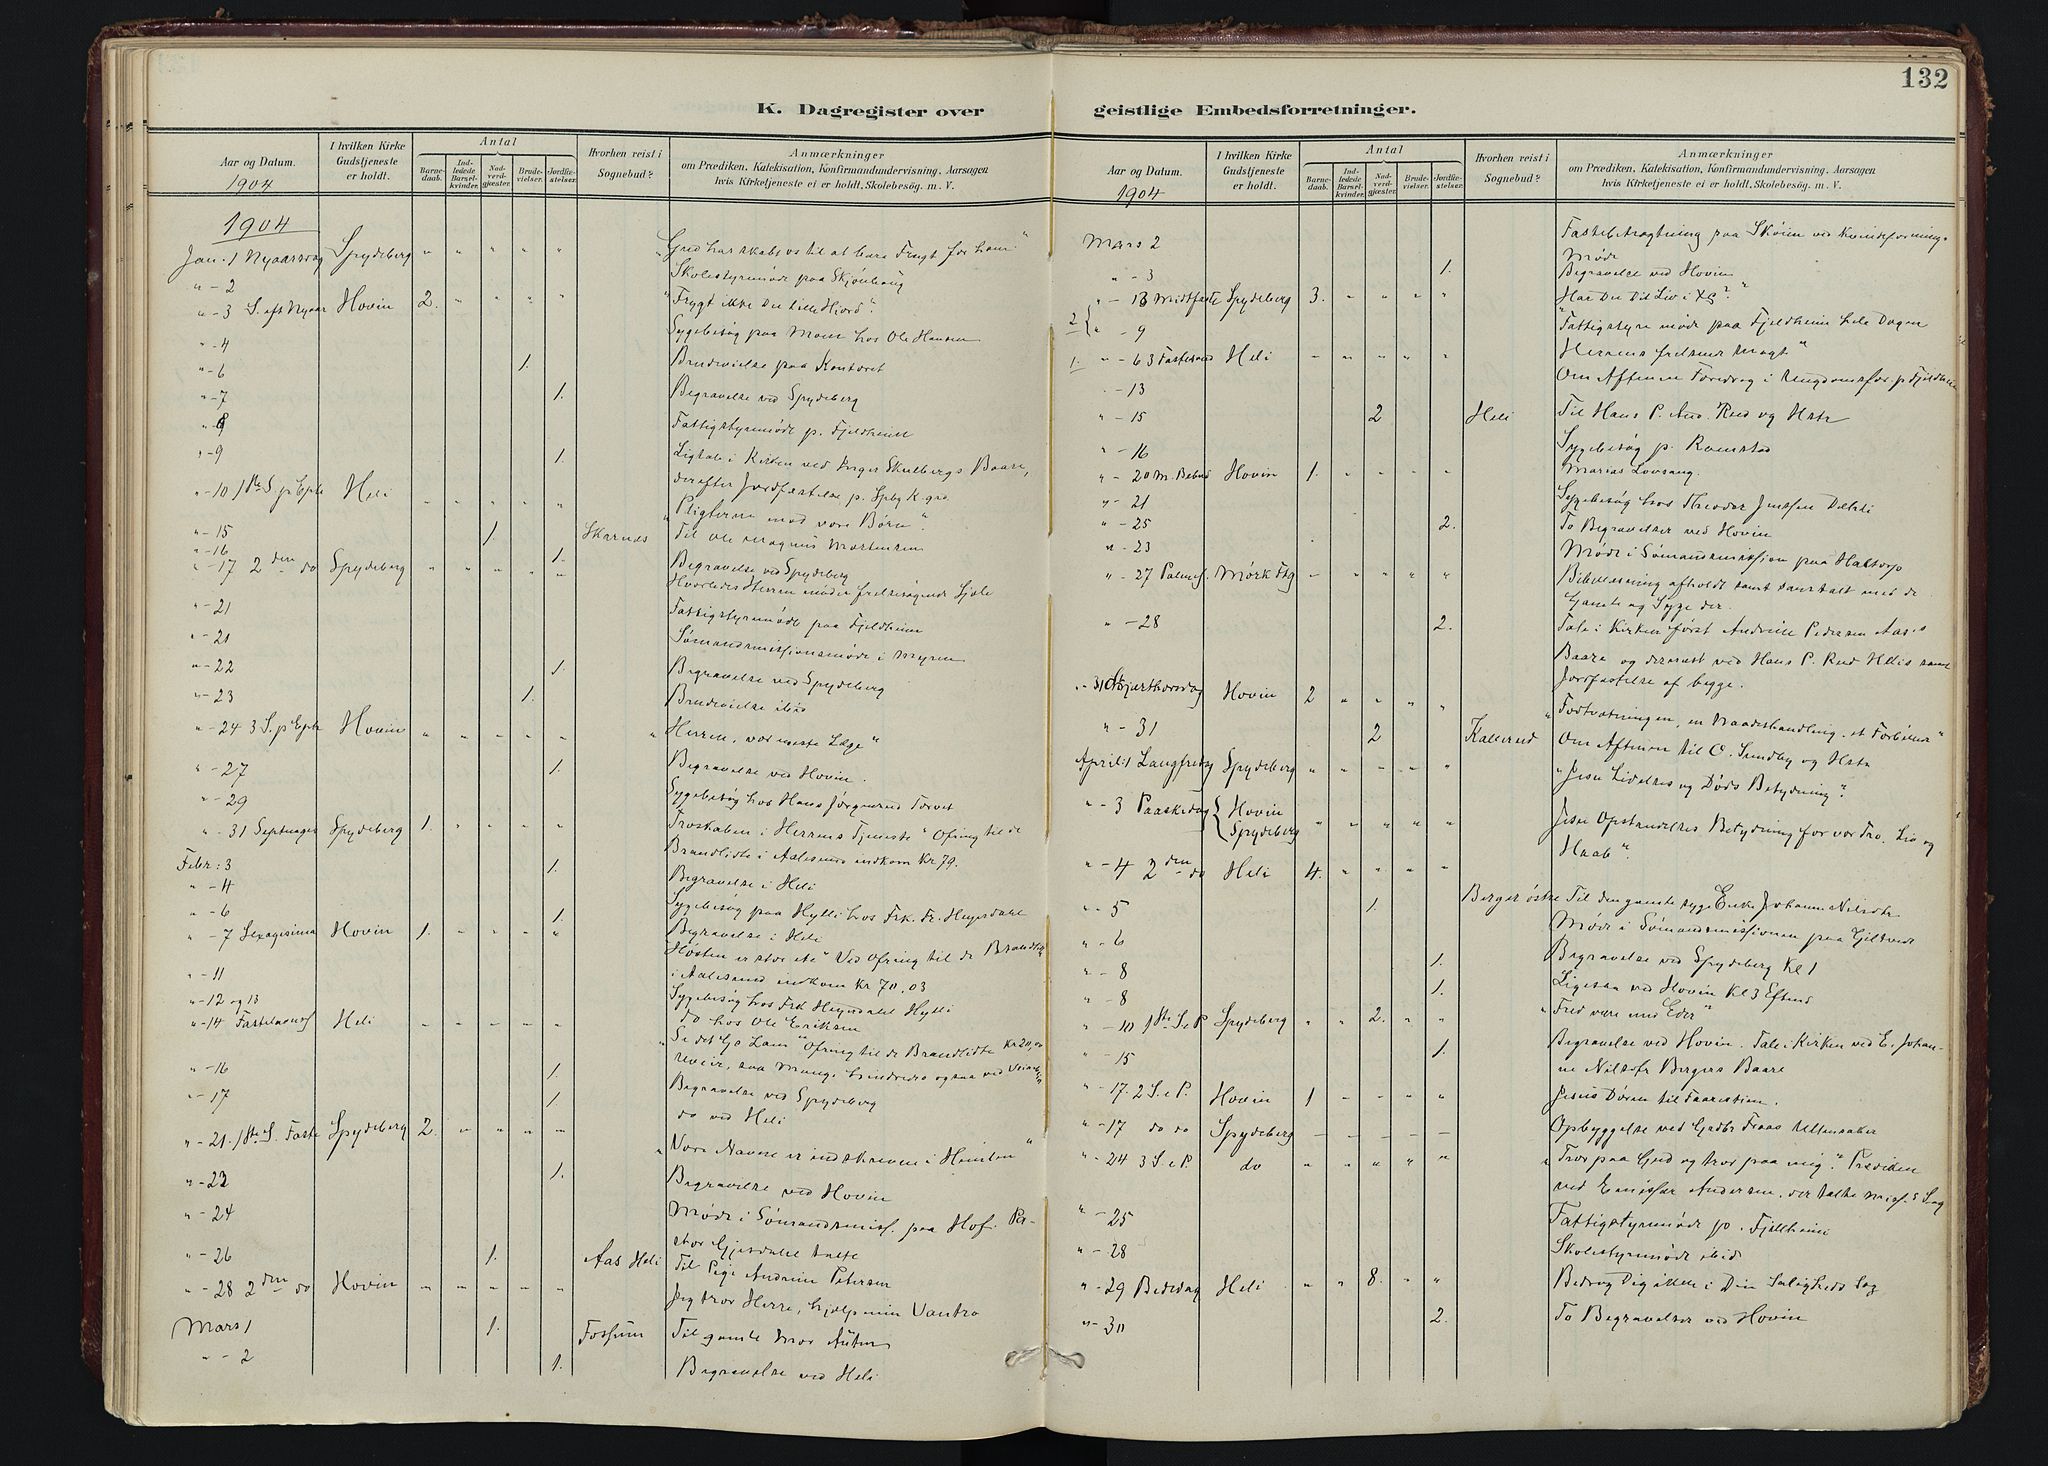 132
K. Dagregister over geistlige Embedsforretninger.
Aar og Datum. I hvilken Kirke Gudstjeneste er holdt. Antal Barnedaab. Indledede Barselkvinder. Nadverdgjæster. Brudevielser. Jordfæstelser. Hvorhen reist i Sognebud? Anmærkninger om Prædiken, Katekisation, Konfirmandundervisning, Aarsagen hvis Kirketjeneste ei er holdt, Skolebesøg. m. V.
1904
1904
Jan. 1 Nyaarsdag Spydeberg " " " " " "Gud har skabt os til at bære Frugt for ham"
" - 2 Skolestyremøde paa Skjønhaug
" - 3 S. eft Nyaar Hovin 2. " " " " "Frygt ikke Du lille Hjord".
" - 4 Sygebesøg paa Moen hos Ole Hansen
" - 6 1. Brudevielse paa Kontoret
" - 7 1. Begravelse ved Spydeberg
" - 8 Fattigstyremøde p. Fjeldheim
" - 9 1. Ligtale i Kirken ved Inger Skulbergs Baare,
derefter Jordfæstelse p. Spbg K.grd
" - 10 1ste S. p Eph Heli " " " " " "Pligterne mod vore Børn".
" - 15 1. Skarnes Til Ole Magnus Martinsen
" - 16 1. Begravelse ved Spydeberg
" - 17 2den do Spydeberg " " " " " Hvorledes Herren møder frelsesøgende Sjæle
" - 21 Fattigstyremøde paa Fjeldheim
" - 21 Sømandsmissionsmøde i Myren
" - 22 1. Begravelse ved Spydeberg
" - 23 1. Brudevielse ibid
" - 24 3 S. p Eph Hovin " " " " " "Herren, vor Læge"
" - 27 1. Begravelse ved Hovin.
" - 29 Sygebesøg hos Hans Jørgensen Torvet
" - 31 Septuages Spydeberg 1. " " " " Troskaben i Herrens Tjeneste" Ofring til de
Brandlidte i Aalesund indkom Kr 79.
Febr: 3 1. Begravelse i Heli
" - 4 Sygebesøg paa Hylli hos Frk. Fr. Heyerdahl
" - 6 1. Begravelse i Heli
" - 7 Sexagesima Hovin 1. " " " " Høsten er stor etc" Ved Ofring til de Brandlidte
i Aalesund indkom Kr 70.03
" - 11 Sygebesøg hos Frk Heyerdahl Hylli
" - 12 og 13 do hos Ole Eriksen
" - 14 Fastelavns Heli " " " " " "Se det Gs Lam" Ofring til de Brandlidte Kr 20,00
" - 16 1. Begravelse ved Spydeberg
" - 17 1. do ved Heli
" - 21. 1ste S. Faste Spydeberg 2. " " " " "Vore Navne er indskrevne i Himlen"
" - 23 1. Begravelse ved Hovin
" - 24 Møde i Sømandsmis. paa Hof. Pastor Gjerdahl talte
" - 26 1. Aas Heli Til Pige Andrine Petersen
" - 28 2den do Hovin " " " " " Jeg tror Herre, hjælp min Vantro
Mars 1 1. Fossum Til gamle Mor
" - 2 1. Begravelse ved Heli
Aar og Datum. I hvilken Kirke Gudstjeneste er holdt. Antal Barnedaab. Indledede Barselkvinder. Nadverdgjæster. Brudevielser. Jordfæstelser. Hvorhen reist i Sognebud? Anmærkninger om Prædiken, Katekisation, Konfirmandundervisning, Aarsagen hvis Kirketjeneste ei er holdt, Skolebesøg. m. V.
1904
Mars 2 Fastebetragtning paa Skøien ved Kvindeforenings
Møde
" - 3 1. Begravelse ved Hovin
" - 13 Midtfaste Spydeberg 3. " " " " "Har Du Dit Liv i
2 " - 9 Fattigstyremøde paa Fjeldheim hele Dagen
1. " - 6 3 Fastesønd Heli " " " " " Herrens frelsende Magt"
" - 13 Om Aftenen Foredrag i Ungdomsfor. p Fjeldheim
" - 15 2 Heli Til Hans P. And. Rud og Hstr
" - 16 Sygebesøg p.
" - 20 M. Bebud Hovin 1. " " " " Marias Lovsang.
" - 21 Sygebesøg hos Theodor Jenssen
" - 25 2. To Begravelser ved Hovin
" - 23 Møde i Sømandsmission paa
" - 27 Palmes. Mørk Ftg " " " " " Bibellæsning afholdt samt samtalt med de
Gamle og Syge der.
" - 28 2. Tale i Kirken først Andrine Pedersen Aas's
Baare og dernæst ved Hans P. Rud Helis samt
Jordfæstelse af begge.
" - 31 Skjærthorsdag Hovin 2 " " " " "Fodtvætningen, en Naadeshandling, et Forbillede"
" - 31 2 Kallerud Om Aftenen til O. Sundby og Hstr
April: 1 Langfredag Spydeberg " " " " " "Jesu Lidelses og Døds Betydning".
" - 3 Paaskedag Hovin Spydeberg " " " " " Jesu Opstandelses Betydning for vor Tro, Liv og
Haab".
" - 4 2den do Heli 4. " " " "
" - 5 1. Berger østre Til den gamle syge Enke Johanne Nilsdtr
" - 6 Møde i Sømandsmissionen paa
" - 8 1. Begravelse ved Spydeberg Kl 1
" - 8 1. Ligesaa ved Hovin Kl 3 Efterm
" - 10 1ste S. e P Spydeberg " " 2. " " "Fred være med Eder"
" - 15 1. Begravelse ved Hovin. Tale i Kirken ved E. Johanne Nilsdtr Bergers Baare
" - 17. 2 S. e P. Hovin 1 " " " " Jesus Døren til Faarestien.
" - 17 do do Spydeberg " " " " " Opbyggelse ved
" - 24 3 S. e P. do " " " " " "Tror paa Gud og tror paa mig." Prædiken
ved Emissær Andersen, der talte Mis.s Sag
" - 25 Fattigstyremøde p. Fjeldheim
" - 28 Skolestyremøde ibid
" - 29 Bededag Heli " " 8. " " Bedrag Dig ikke i Din Saligheds Sag
" - 30 2. To Begravelser ved Hovin